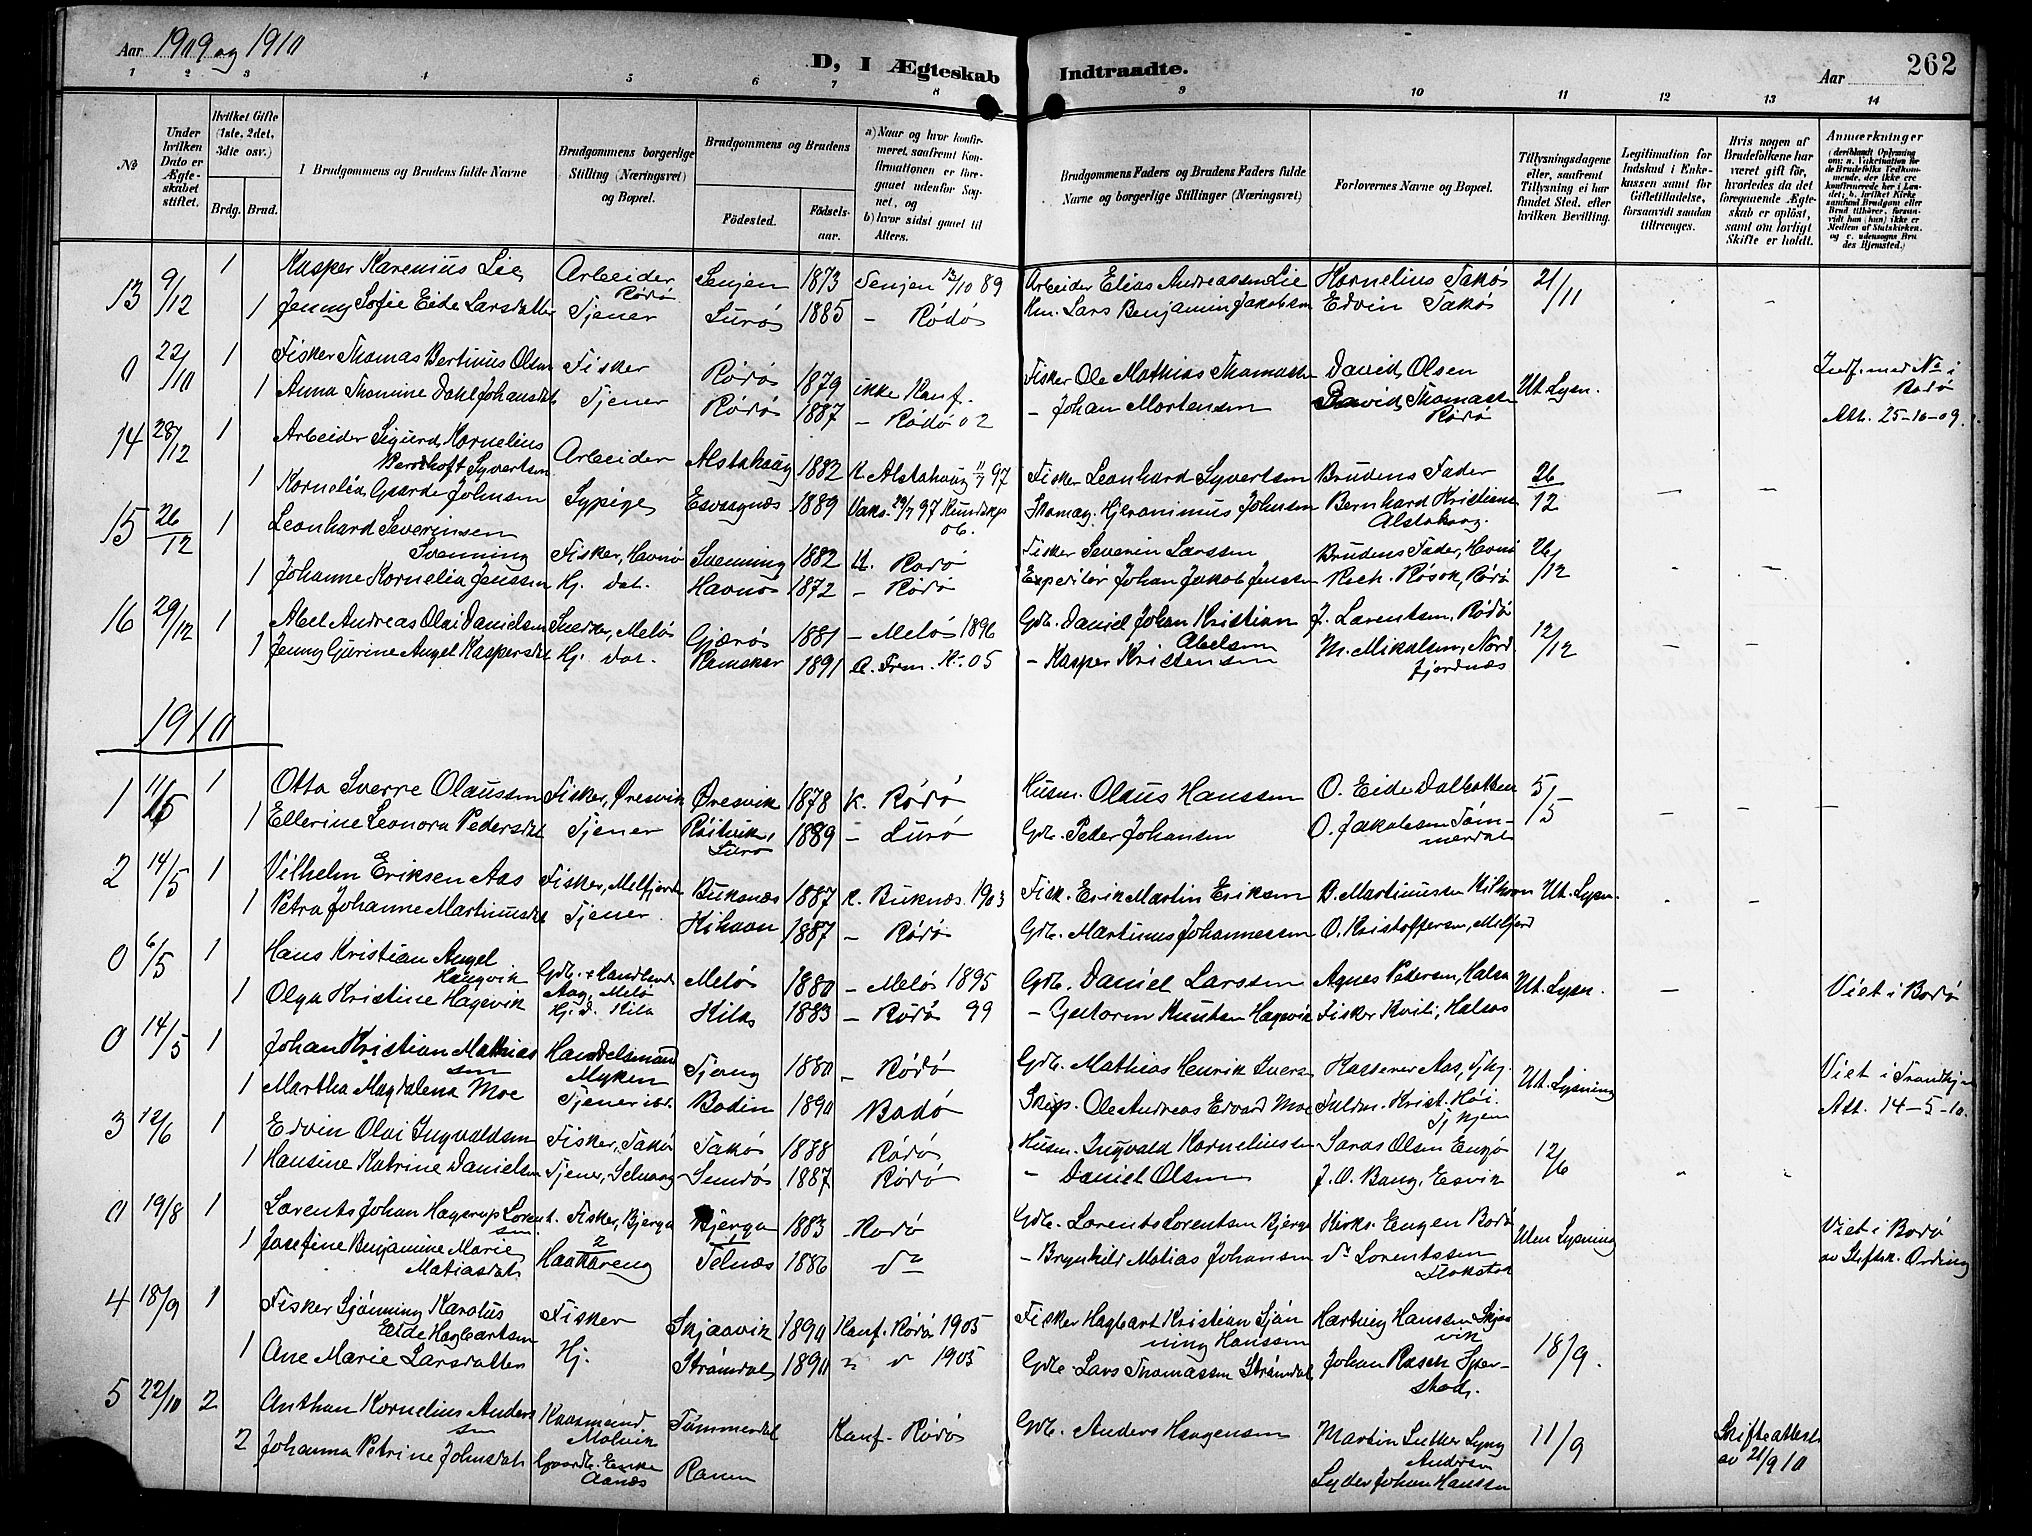 Aar 1909 og 1910
D, I Ægteskab Indtraadte.
Aar
262
1 2 3 4 5 6 7 8 9 10 11 12 13 14
No
Under hvilken Dato er Ægteskabet stiftet.
Hvilket Gifte (1ste, 2det, 3dte osv.)
Brdg. Brud.
I Brudgommens og Brudens fulde Navne
Brudgommens borgerlige Stilling (Næringsvei) og Bopæl.
Brudgommens og Brudens
Fødested.
Fødsels-aar.
a) Naar og hvor konfirmeret, saafremt Konfirmationen er foregaaet udenfor Sognet, og b) hvor sidst gaaet til Alters.
Brudgommens Faders og Brudens Faders fulde Navne og borgerlige Stillinger (Næringsvei)
Forlovernes Navne og Bopæl.
Tillysningsdagene eller, saafremt Tillysning ei har fundet Sted, efter hvilken Bevilling.
Legitimation for Indskud i Enkekassen samt for Giftetilladelse, forsaavidt saadan tiltrænges.
Hvis nogen af Brudefolkene har været gift før, hvorledes da det foregaaende Ægteskab er opløst, samt om lovligt Skifte er holdt.
Anmærkninger
13 9/12 1 Kasper Karenius Lie Arbeider Rødø Senjen 1873 Senjen 13/10 89 Arbeider Elias Andreassen Lie Kornelius Takøs 21/11
1 Jenny Sofie Eide Larsdatter Tjener Lurø 1885 – Rødø Hm. Lars Benjamin Jakobsen Edvin Takøs
0 22/10 1 Fisker Thomas Bertinus Olsen Fisker Rødø 1879 ikke Konf. Fisker Ole Mathias Thomassen David Olsen Ut. Lysn. Indf. med No i Rødø
1 Anna Thomine Dahl Johansdat. Tjener Rødø 1887 – Rødø 02 – Johan Mortensen David Thomassen Rødø Att. 25-10-09.
14 28/12 1 Arbeider Sigurd Kornelius Syvertsen Arbeider Alstahaug 1882 K. Alstahaug 97 Fisker Leonhard Syvertsen Brudens Fader 26/12
1 Kornelia Gaarde Johnsen Sypige 1889 Hjeronimus Johnsen Bernhard Kristians Alstahaug.
15 26/12 1 Leonhard Severinsen Svenning Fisker, Havnø Svenning 1882 K. Rødø Fisker Severin Larssen Brudens Fader, Havnø 26/12
1 Johanne Kornelia Jenssen Hj. dat. Havnø 1872 – Rødø Expeditør Johan Jakob Jenssen Rich. Røsok, Rødø
16 29/12 1 Abel Andreas Olai Danielsen Snedker, Meløs Gjærøs 1881 – Meløs 1896 Gdb. Daniel Johan Kristian Abelsen J. Larentsen, Rødø 12/12
1 Jenny Gurine Angel Kaspersdat Hj. dat. 1891 05 – Kasper Kristensen M. Mikalsen, Nordfjordnæs
1910
1 11/5 1 Otto Sverre Olaussen Fisker, Øresvik Øresvik 1878 K. Rødø Husm. Olaus Hanssen O. Eide Dalbotten 5/5
1 Ellerine Leonora Pedersdat Tjener Lurø 1889 – Lurø Gdb. Peder Johansen O. Jakobsen Tømmerdal
2 14/5 1 Vilhelm Eriksen Aas Fisker, Melfjorden Buksnæs 1887 K. Buksnæs 1903 Fisk. Erik Martin Eriksen B. Martinussen Kilhavn Ut. Lysn.
1 Petra Johanne Martinusdat Tjener Kihavn 1887 – Rødø Gdb. Martinus Johannessen O. Kristoffersen, Melfjord
0 6/5 1 Hans Kristian Angel Haugvik Gdb. & Handlende Aag, Melø Meløs 1880 – Meløs 1895 Gdb. Daniel Larssen Agnes Pedersen, Halsa Ut. Lysn. Viet i Bodø
1 Olga Kristine Hagevik Hj. d. Kila Kilas 1883 – Rødø 99 – Gutorm Knutsen Hagevik Fisker Kvili, Halsøs
0 14/5 1 Johan Kristian Mathiassen Handelsmand Myken Tjong 1880 – Rødø Gdb. Mathias Henrik Iversen Kasserer Aas, Tjhj. Ut. Lysning Viet i Trondhjem
1 Martha Magdalena Moe Tjener ibd. Bodin 1890 Bodø Skip. Ole Andreas Edvard Moe Fuldm. Krist. Høi. Att. 14-5-10
3 12/6 1 Edvin Olai Ingvaldsen Fisker, Takø Takø 1878 Rødø Husm. Ingvald Korneliussen Saras Olsen Engø 12/6
1 Hansine Katrine Danielsen Tjener, Selvaag Sundøs 1887 Rødø – Daniel Olsen J. O. Bang, Esvik
0 19/8 1 Larents Johan Hagerup Lorentsen Fisker, Bjerga Bjerga 1883 Rødø Gdb. Lorents Lorentsen Bjerga Kirks. Eugen Bodø Uten Lysning Viet i Bodø
1 Josefine Benjamine Marie Matiasdat. Telnæs 1886 do – Brynhild Matias Johansen do Lorentssen Flakstad av Skifterk. Ording
4 18/9 1 Fisker Sjønning Karolus Eide Hagbartsen Fisker Skjaavik 1890 Konf. Rødø 1905 Fisker Hagbart Kristian Sjønning Hanssen Hartvig Hanssen Skjaavik 18/9.
1 Ane Marie Larsdatter Hj. Strømdal 1890 " " 1905 Gdb. Lars Thomassen Strømdal Johan Rasch Sperstad.
5 22/10 2 Anthon Kornelius Anderssen Molvik Tømmerdal Konf. Rødø Gdb. Anders Haagensen Martin Luther Lyng Andersen 11/9 Skifteattest av 21/9 10
2 Johanna Petrine Johnsdat. Gaardb. Enke Aanæs Ranen Lyder Johan Hanssen